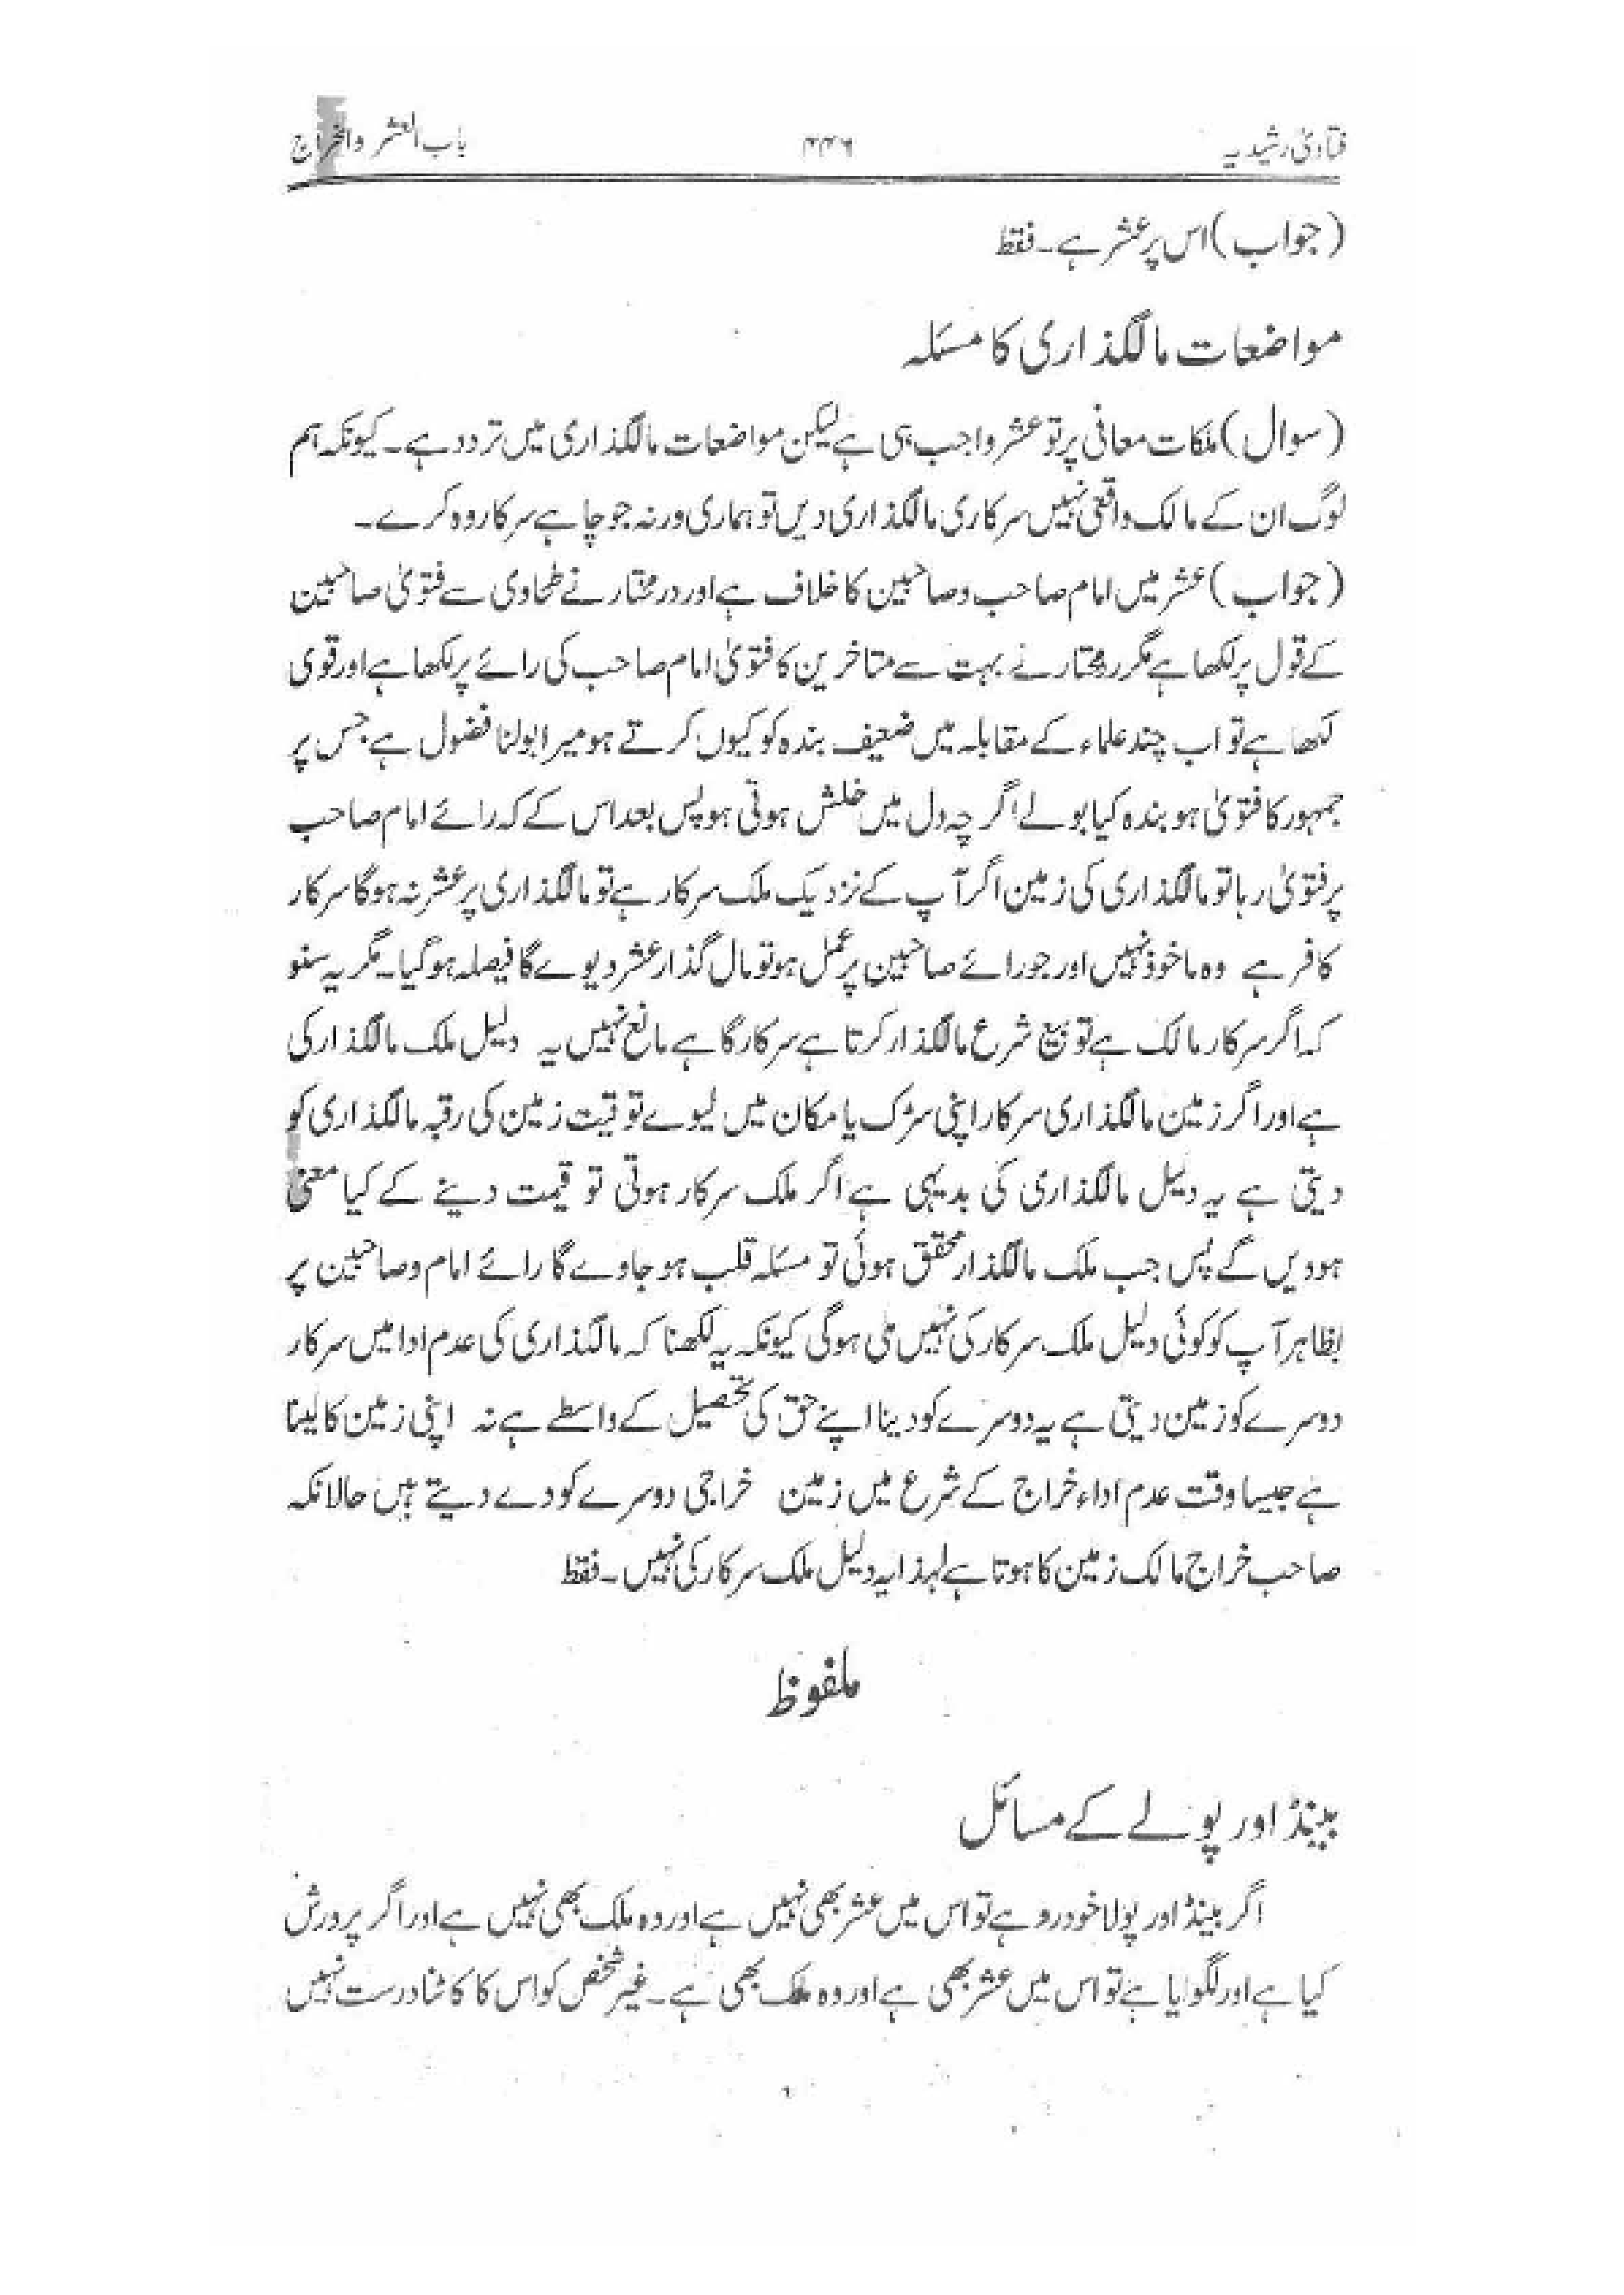 فتاویٰ رشیدیہ ۴۴۶ باب العشر والخراج
(جواب) اس پر عشر ہے۔ فقط
مواضعات مالگذاری کا مسئلہ
(سوال) ملکات معافی پر تو عشر واجب ہی ہے لیکن مواضعات مالگذاری میں تردد ہے۔ کیونکہ ہم
لوگ ان کے مالک واقعی نہیں سرکاری مالگذاری دیں تو ہماری ورنہ جو چاہے سرکار وہ کرے۔
(جواب) عشر میں امام صاحب وصاحبین کا خلاف ہے اور درمختار نے طحاوی سے فتویٰ صاحبین
کے قول پر لکھا ہے مگر ردمختار نے بہت سے متاخرین کا فتویٰ امام صاحب کی رائے پر لکھا ہے اور قوی
لکھا ہے تو اب چند علماء کے مقابلہ میں ضعیف بندہ کو کیوں کرتے ہو میرا بولنا فضول ہے جس پر
جمہور کا فتویٰ ہو بندہ کیا بولے اگر چہ دل میں خلش ہوتی ہو پس بعد اس کے کہ رائے امام صاحب
پر فتویٰ رہا تو مالگذاری کی زمین اگر آپ کے نزدیک ملک سرکار ہے تو مالگذاری پر عشر نہ ہوگا سرکار
کافر ہے وہ ماخوذ نہیں اور جو رائے صاحبین پر عمل ہو تو مال گذار عشر دیوے گا فیصلہ ہو گیا۔ مگر یہ سنو
کہ اگر سرکار مالک ہے تو بیع شرع مالگذار کرتا ہے سرکار گاہے مانع نہیں یہ دلیل ملک مالگذار کی
ہے اور اگر زمین مالگذاری سرکار اپنی سڑک یا مکان میں لیوے تو قیمت زمین کی رقبہ مالگذاری کو
دیتی ہے یہ دلیل مالگذاری کی بدیہی ہے اگر ملک سرکار ہوتی تو قیمت دینے کے کیا معنی
ہوویں گے پس جب ملک مالگذار محقق ہوئی تو مسئلہ قلب ہو جاوے گا رائے امام وصاحبین پر
بظاہر آپ کو کوئی دلیل ملک سرکار کی نہیں ملی ہوگی کیونکہ یہ لکھنا کہ مالگذاری کی عدم ادا میں سرکار
دوسرے کو زمین دیتی ہے یہ دوسرے کو دینا اپنے حق کی تحصیل کے واسطے ہے نہ اپنی زمین کا لینا
ہے جیسا وقت عدم اداء خراج کے شرع میں زمین خراجی دوسرے کو دے دیتے ہیں حالانکہ
صاحب خراج مالک زمین کا ہوتا ہے لہذا یہ دلیل ملک سرکار کی نہیں۔ فقط
ملفوظ
بینڈ اور پولے کے مسائل
اگر بینڈ اور پولا خودرو ہے تو اس میں عشر بھی نہیں ہے اور وہ ملک بھی نہیں ہے اور اگر پرورش
کیا ہے اور لگوایا ہے تو اس میں عشر بھی ہے اور وہ ملک بھی ہے۔ غیر شخص کو اس کا کاٹنا درست نہیں